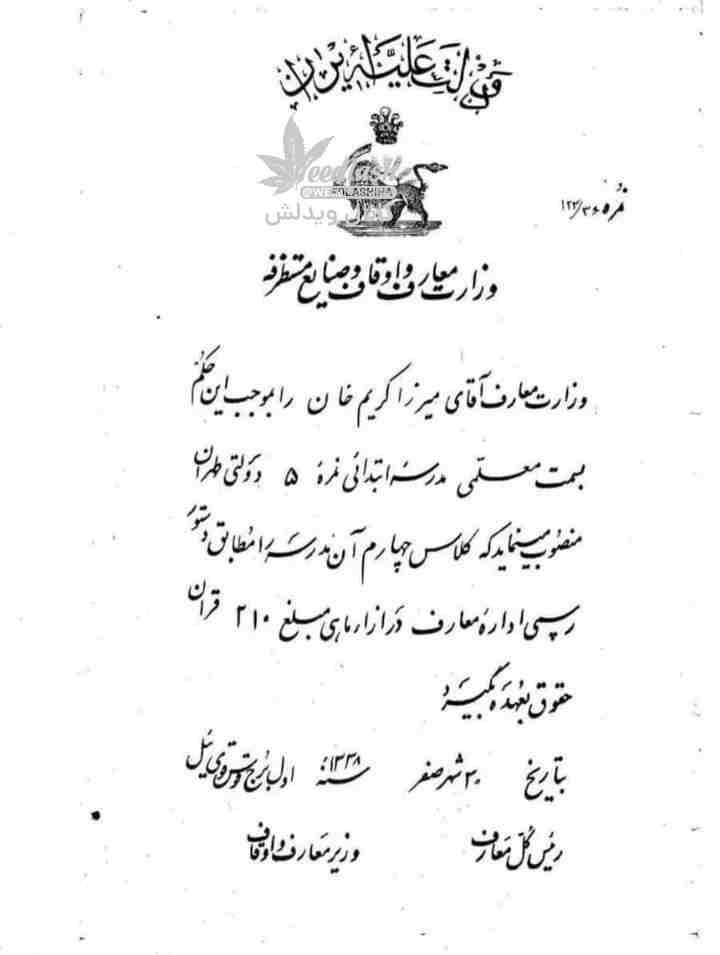 دولت علیّه ایران
WeedLash
@WEEDLASHIHA
کانال ویدلش
نمره ۱۲۲/۳۶۰
وزارت معارف و اوقاف و صنایع مستظرفه
وزارت معارف آقای میرزا کریم خان را بموجب این حکم
بسمت معلمی مدرسه ابتدائی نمرهٔ ۵ دولتی طهران
منصوب مینماید که کلاس چهارم آن مدرسه را مطابق دستور
رسمی ادارهٔ معارف در ازاء ماهی مبلغ ۲۱۰ قران
حقوق بعهده بگیرد
بتاریخ ۳۰ شهر صفر سنه ۱۳۳۸ اول برج قوس قوی ئیل
رئیس کل معارف
وزیر معارف و اوقاف